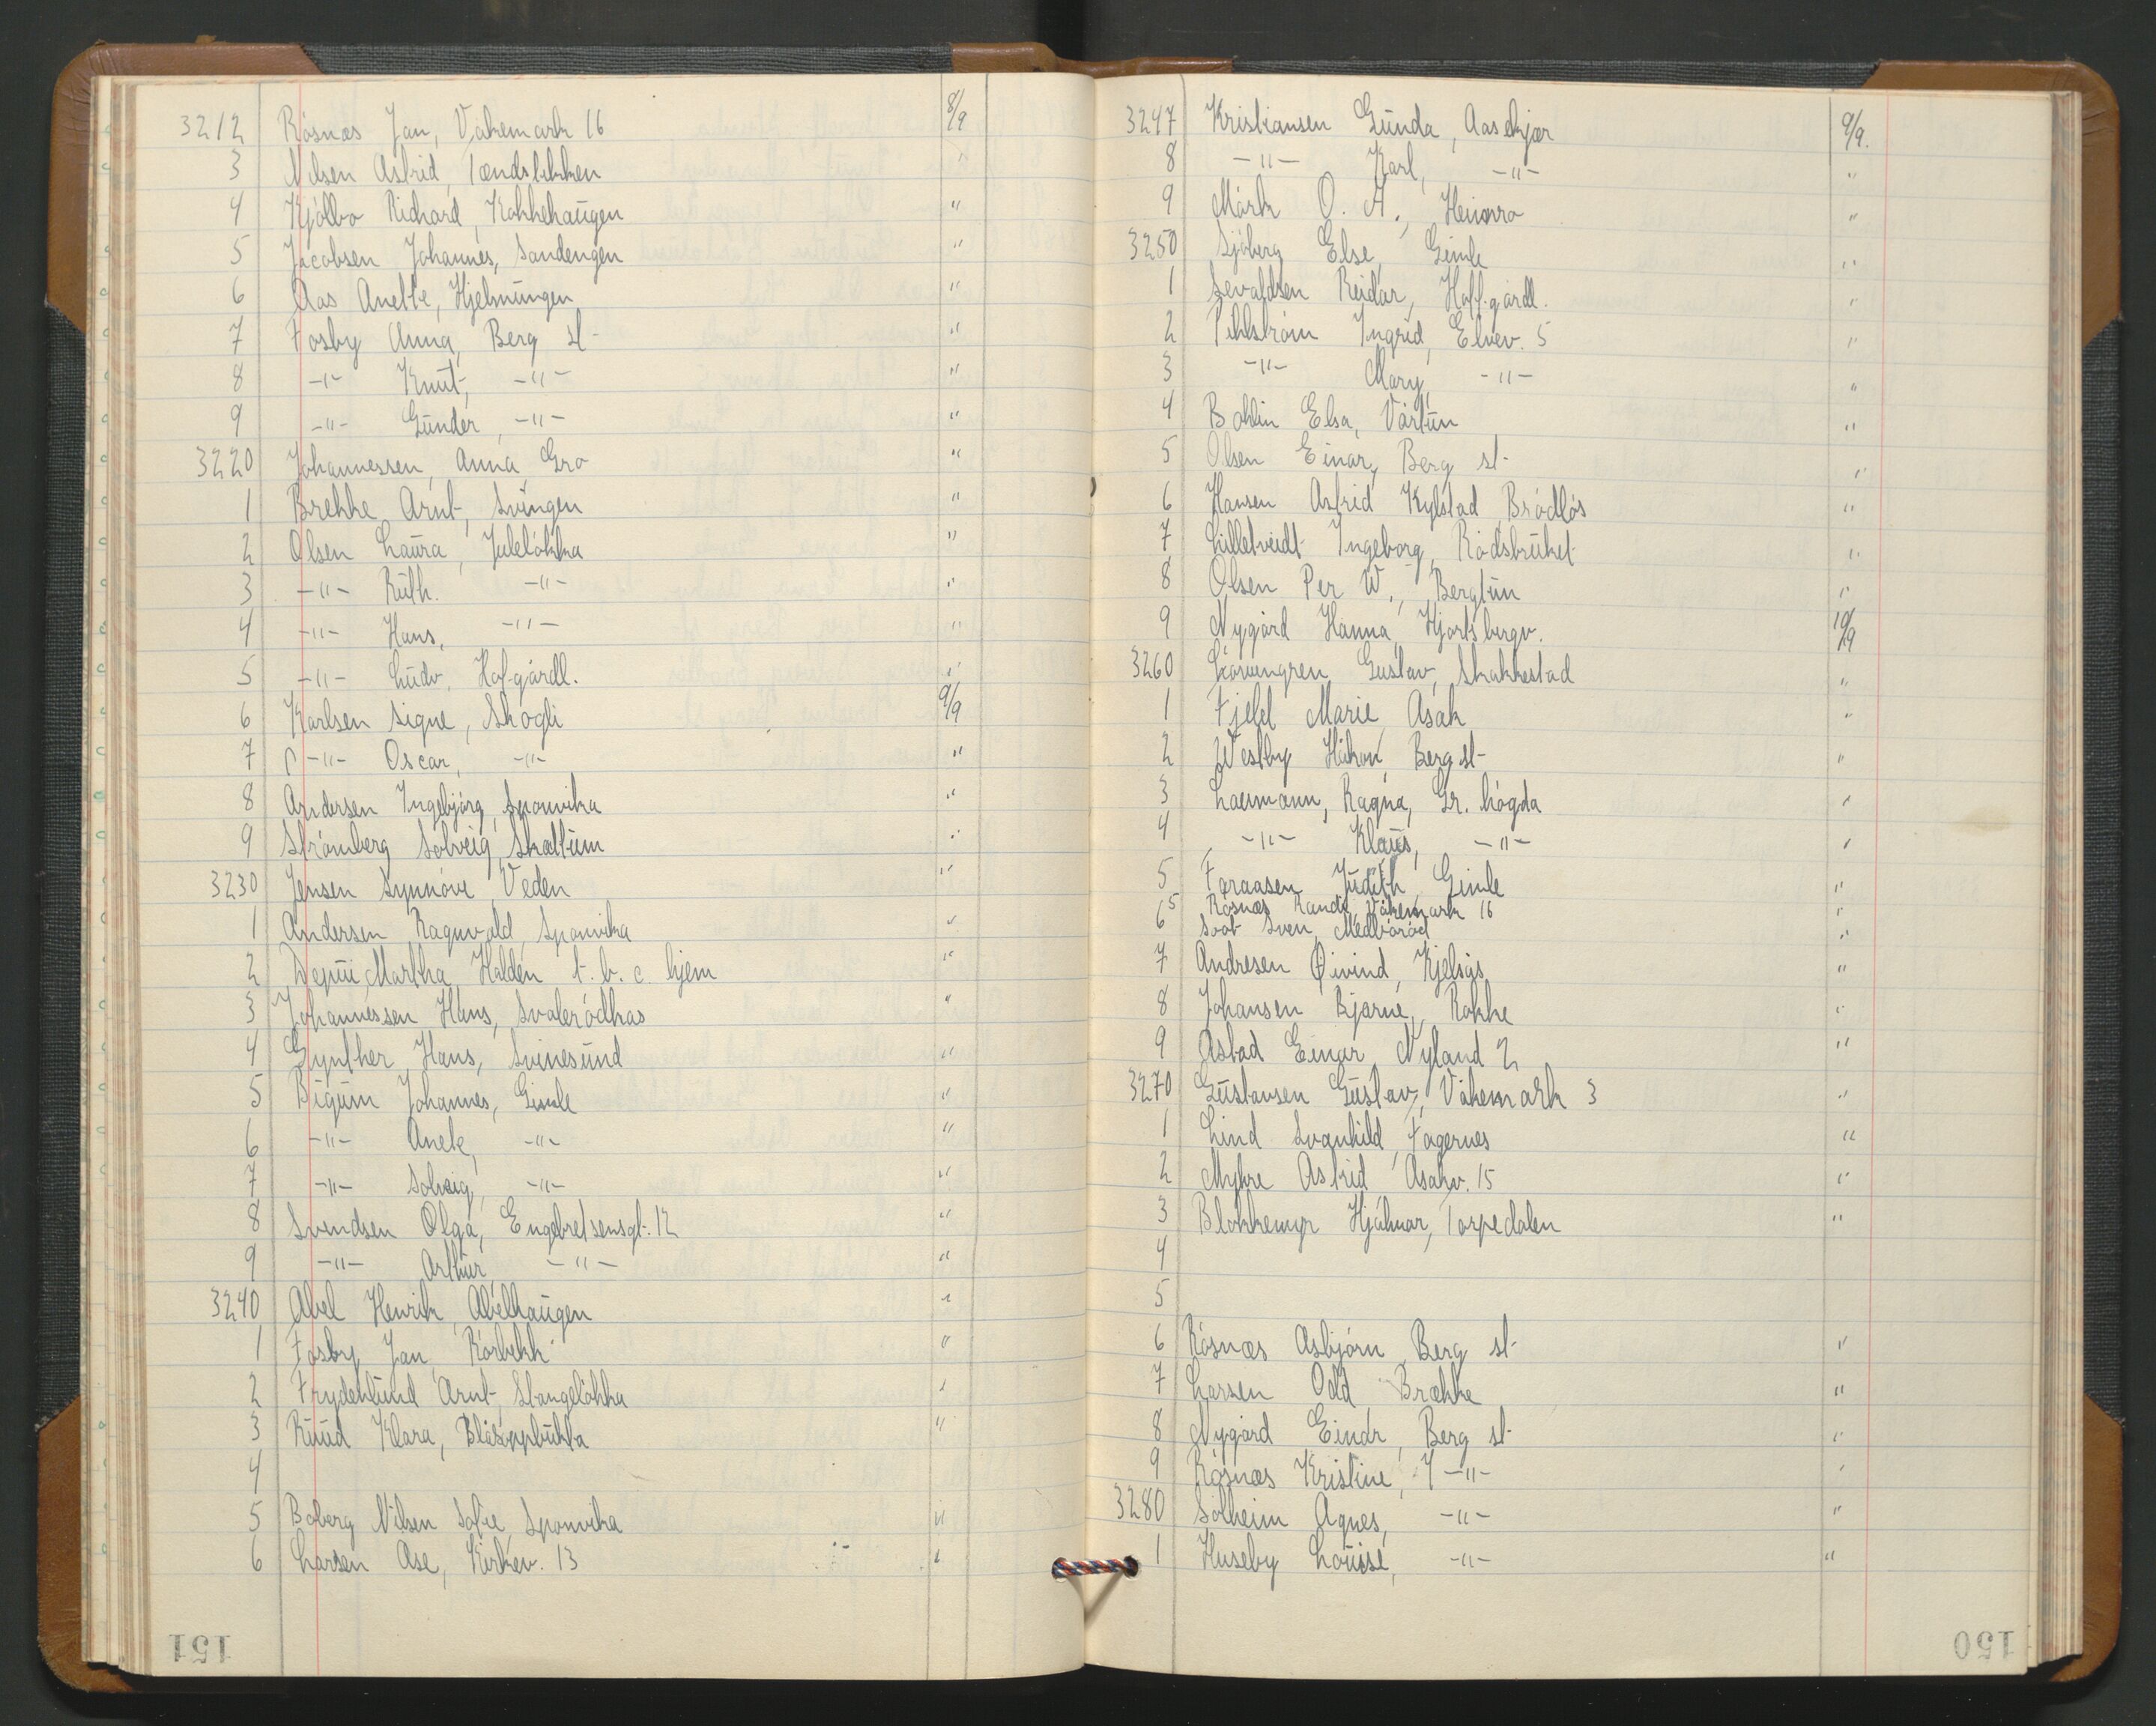 3212 Rösnæs Jan, Vakemark 16 8/9
3 Nilsen Astrid, Tændstikken "
4 Kjölbo Richard, Kokkehaugen "
5 Jacobsen Johannes, Sandengen "
6 Aas Anette, Hjelmungen "
7 Fosby Anna, Berg st "
8 -"- Knut, -"- "
9 -"- Gunder, -"- "
3220 Johannessen, Anna, Gro "
1 Brekke Arnt, Svingen "
2 Olsen Laura, Juleløkka "
3 -"- Ruth. -"- "
4 -"- Hans, -"- "
5 -"- Ludv. Hofgårdl. "
6 Karlsen Signe, Skogli 9/9
7 -"- Oscar, -"- "
8 Andersen Ingebjörg, Sponvika "
9 Strömberg Solveig, Skaltum "
3230 Jensen Synnöve, Veden "
1 Andersen Ragnvald, Sponvika "
2 Martha, Halden t.b.c. hjem "
3 Johannessen Hans, Svalerödkas "
4 Gynther Hans, Svinesund "
5 Bigum Johannes, Gimle "
6 -"- Anete, -"- "
7 -"- Solveig, -"- "
8 Svendsen Olga, Engebretsensgt. 12 "
9 -"- Arthur -"- "
3240 Abel Henrik, Abelhaugen "
1 Fosby Jan, Rörbekk "
2 Frydenlund Arnt, Stangeløkka "
3 Ruud Klara, Blåsoppbukta "
4
5 Boberg Nilsen Sofie, Sponvika "
6 Larsen Åse, Kirkev. 13 "
151
3247 Kristiansen Gunda, Aaskjær 9/9.
8 -"- Karl, -"- "
9 Mörk O. A., Heimro "
3250 Sjöberg Else, Gimle "
1 Sevaldsen Reidar, Hoff.gårdl. "
2 Pihlström Ingrid, Elvev. 5 "
3 -"- Mary, -"- "
4 Bohlin Elsa, Vårtun "
5 Olsen Einar, Berg st "
6 Hansen Astrid Kylstad Brödlös "
7 Lilletveidt Ingeborg, Rödsbruket "
8 Olsen Per W., Bergtun "
9 Nygård Hanna, Hjortsbergv. 10/9
3260 Gustav, Skakkestad "
1 Fjeld Marie, Asak "
2 Westby Håkon, Berg st "
3 Laumann, Ragna, Gr. högda "
4 -"- Klaus, -"- "
5 Faraasen Judith, Gimle "
5 Rösnæs Randi, Vakemark 16 "
6 Sven, Medböröd "
7 Andresen Øivind, Kjelsås "
8 Johansen Bjarne, Rokke "
9 Åstad Einar, Nyland 2 "
3270 Gustavsen Gustav, Vakemark 3 "
1 Lind Svanhild, Fagernes "
2 Myhre Astrid, Asakv. 15 "
3 Blokkemyr Hjalmar, Torpedalen "
4
5
6 Rösnæs Asbjörn, Berg st "
7 Larsen Odd, Brække "
8 Nygård Einar, Berg st "
9 Rösnæs Kristine, -"- "
3280 Solheim Agnes, -"- "
1 Huseby Louise, -"- "
150